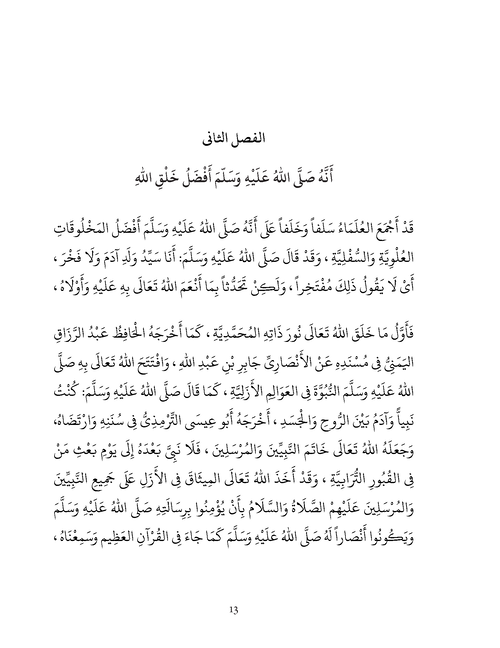 الفصل الثانى
أَنَّهُ صَلَّى اللهُ عَلَيْهِ وَسَلَّمَ أَفْضَلُ خَلْقِ اللهِ
قَدْ أَجْمَعَ العُلَمَاءُ سَلَفاً وَخَلَفاً عَلَى أَنَّهُ صَلَّى اللهُ عَلَيْهِ وَسَلَّمَ أَفْضَلُ المَخْلُوقَاتِ
العُلْوِيَّةِ وَالسُّفْلِيَّةِ ، وَقَدْ قَالَ صَلَّى اللهُ عَلَيْهِ وَسَلَّمَ: أَنَا سَيِّدُ وَلَدِ آدَمَ وَلَا فَخْرَ ،
أَىْ لَا يَقُولُ ذَلِكَ مُفْتَخِراً ، وَلَكِنْ تَحَدُّثاً بِمَا أَنْعَمَ اللهُ تَعَالَى بِهِ عَلَيْهِ وَأَوْلَاهُ ،
فَأَوَّلُ مَا خَلَقَ اللهُ تَعَالَى نُورَ ذَاتِهِ المُحَمَّدِيَّةِ ، كَمَا أَخْرَجَهُ الحَافِظُ عَبْدُ الرَّزَاقِ
اليَمَنِىُّ فِى مُسْنَدِهِ عَنْ الأَنْصَارِىِّ جَابِرِ بْنِ عَبْدِ اللهِ ، وَافْتَتَحَ اللهُ تَعَالَى بِهِ صَلَّى
اللهُ عَلَيْهِ وَسَلَّمَ النُّبُوَّةَ فِى العَوَالِمِ الأَزَلِيَّةِ ، كَمَا قَالَ صَلَّى اللهُ عَلَيْهِ وَسَلَّمَ: كُنْتُ
نَبِياًّ وَآدَمُ بَيْنَ الرُّوحِ وَالْجَسَدِ ، أَخْرَجَهُ أَبُو عِيسَى التِّرْمِذِىُّ فِى سُنَنِهِ وَارْتَضَاهُ،
وَجَعَلَهُ اللهُ تَعَالَى خَاتَمَ النَّبِيِّينَ وَالمُرْسَلِينَ ، فَلَا نَبِىَّ بَعْدَهُ إِلَى يَوْمِ بَعْثِ مَنْ
فِى القُبُورِ التُّرَابِيَّةِ ، وَقَدْ أَخَذَ اللهُ تَعَالَى المِيثَاقَ فِى الأَزَلِ عَلَى جَمِيعِ النَّبِيِّينَ
وَالمُرْسَلِينَ عَلَيْهِمْ الصَّلَاةُ وَالسَّلَامُ بِأَنْ يُؤْمِنُوا بِرِسَالَتِهِ صَلَّى اللهُ عَلَيْهِ وَسَلَّمَ
وَيَكُونُوا أَنْصَاراً لَهُ صَلَّى اللهُ عَلَيْهِ وَسَلَّمَ كَمَا جَاءَ فِى القُرْآنِ العَظِيمِ وَسَمِعْنَاهُ ،
13